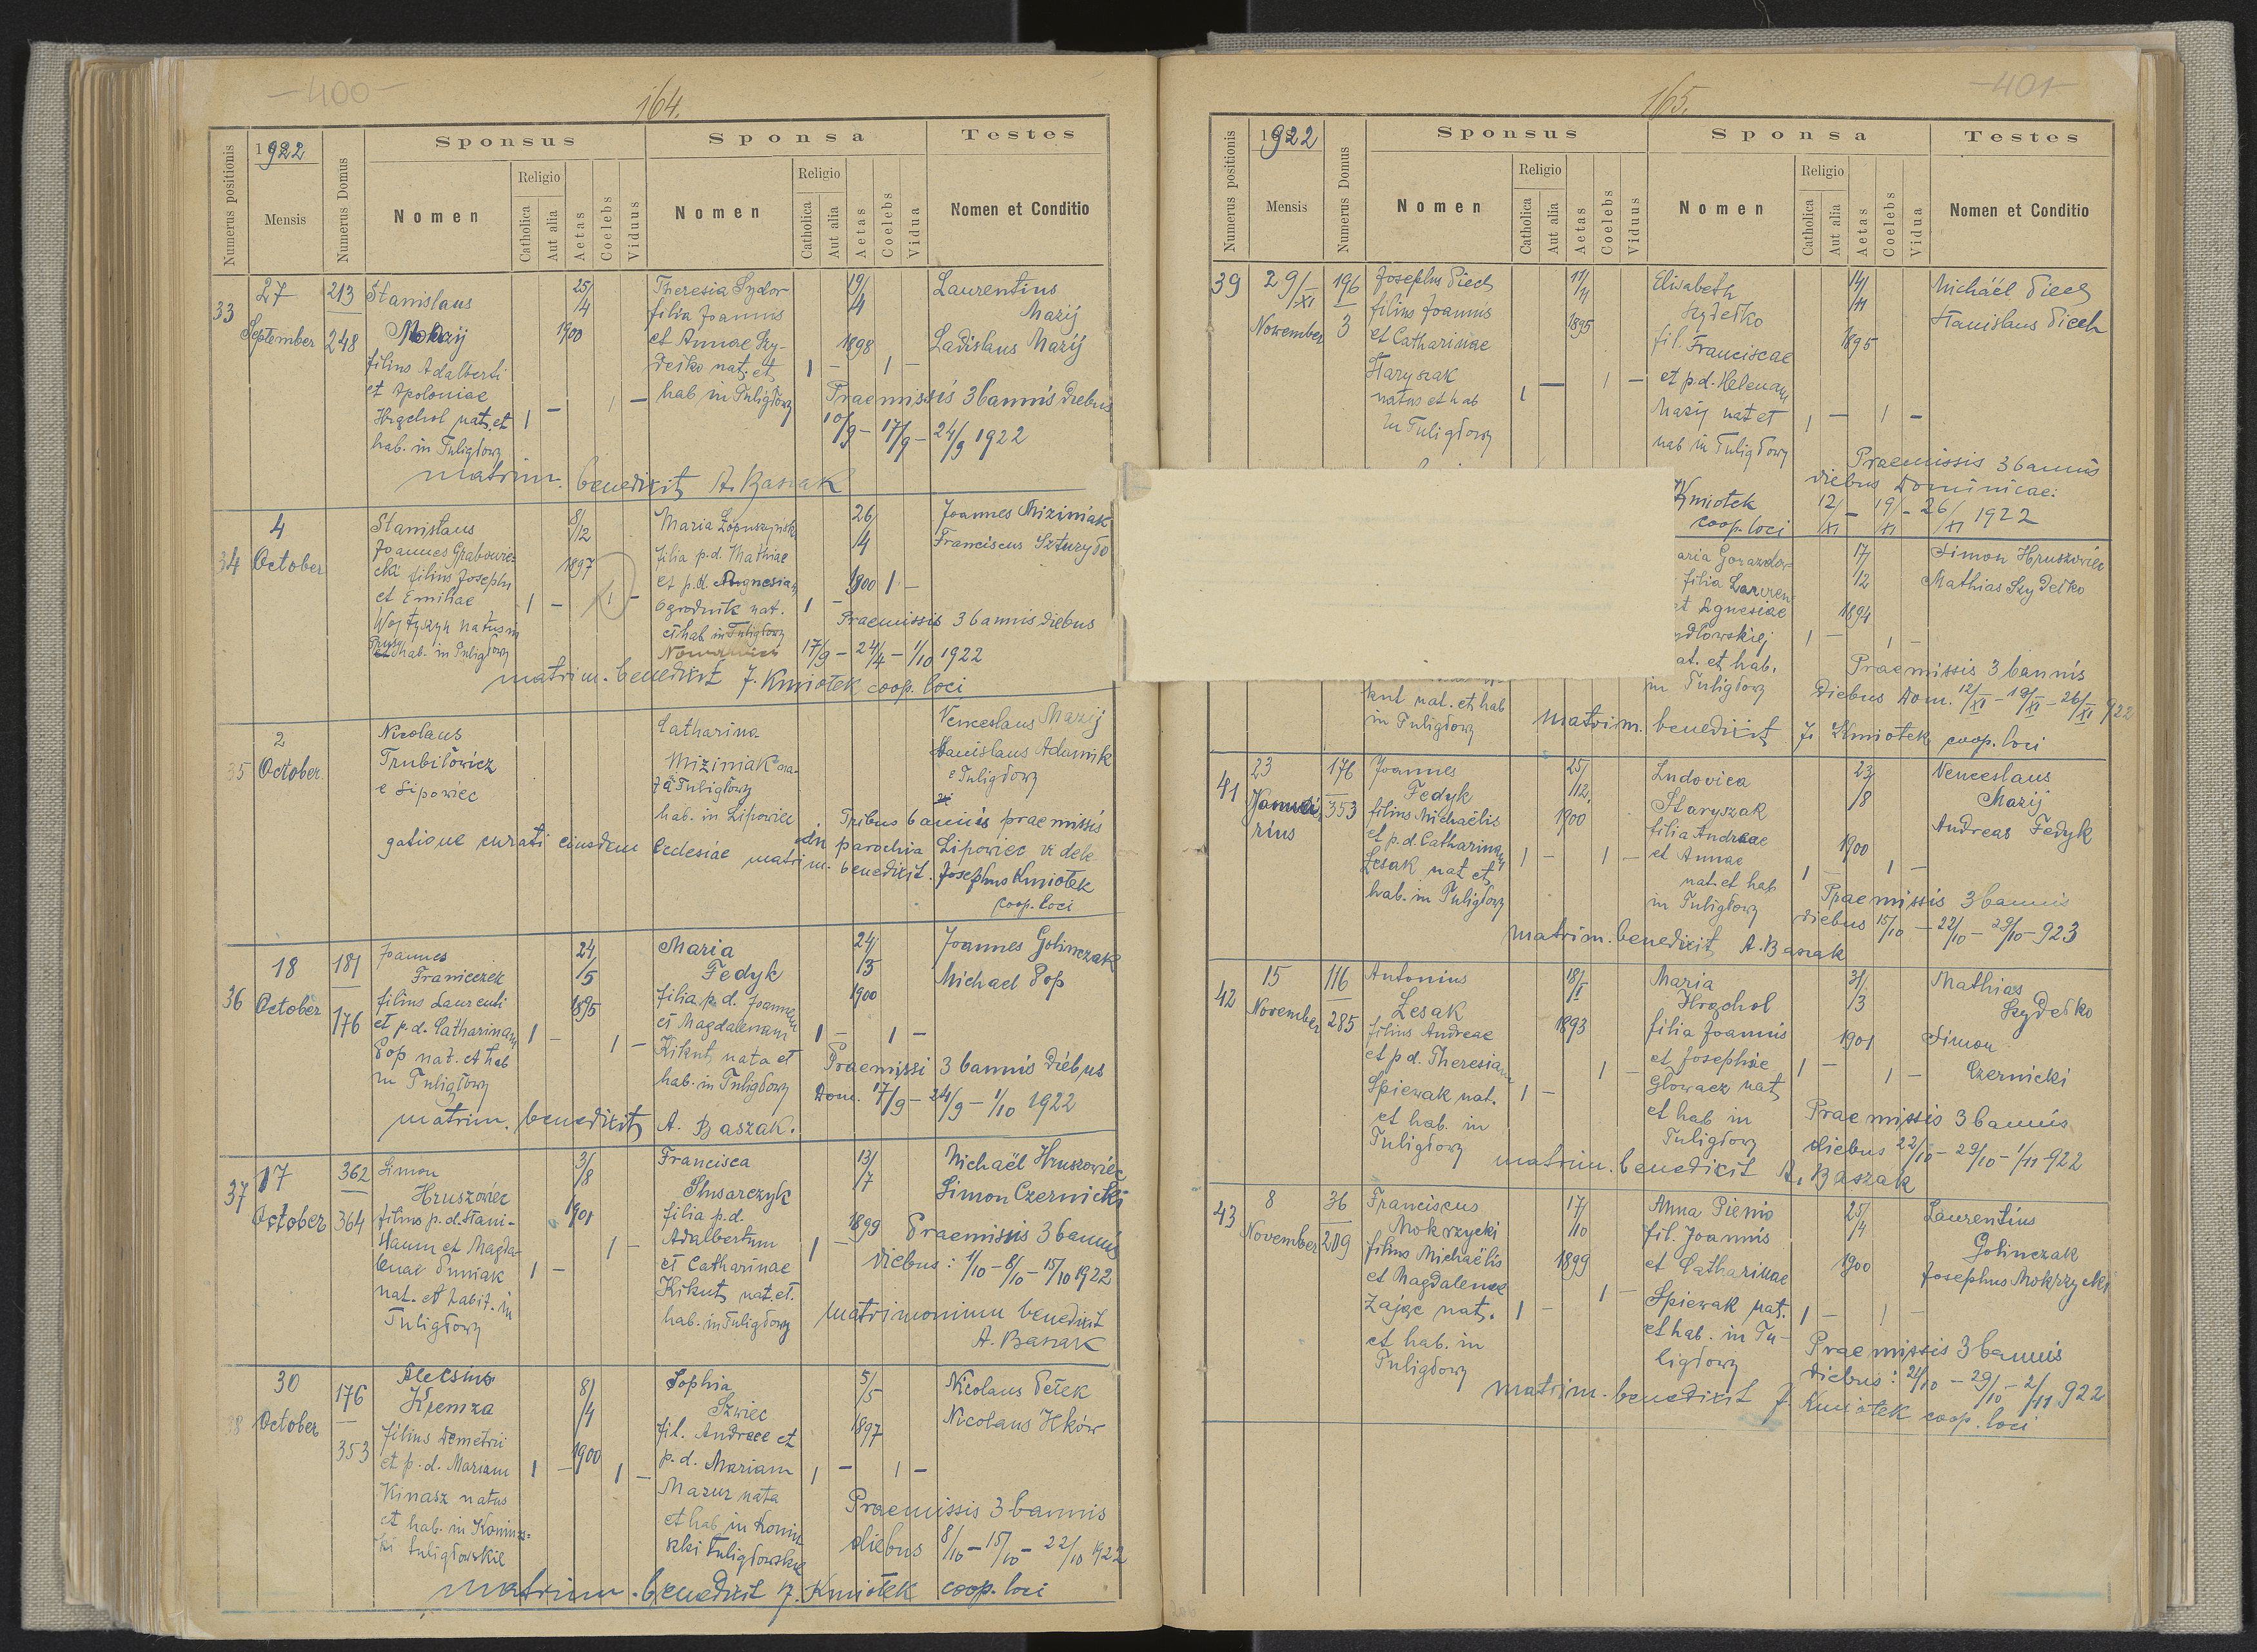 -400-
164.
Numerus positionis
1922
Mensis
Numerus Domus
Sponsus
Nomen
Religio
Catholica
Aut alia
Aetas
Coelebs
Viduus
Sponsa
Nomen
Religio
Catholica
Aut alia
Aetas
Coelebs
Vidua
Testes
Nomen et Conditio
33
27
September
213
248
Stanislaus
filius Adalberti
et Apoloniae
Hrgchol nat. et
hab. in Tuligłowy
25/4
1900
Theresia Sydor
filia Joannis
et Annae Szy-
dełko nat. et
hab in Tuligłowy
19/4
1898
Laurentius
Mazij
Ladislaus Mazij
Praemissis 3 bannis diebus
10/9 - 17/9 - 24/9 1922
matrim. benedixit A. Baszak
34
4
October
Stanislaus
Joannes Grabowie-
cki filius Josephi
et Emiliae
Wojtyszyn natus in
et hab. in Tuligłowy
8/12
1897
Maria
filia p.d. Mathiae
et p.d. Agnesiam
Ogrodnik nat.
et hab in Tuligłowy
26/4
1900
Joannes Miziniak
Franciscus Szturyło
Praemissis 3 bannis diebus
17/9 - 24/4 - 1/10 1922
matrim. benedixit J. Kmiotek coop. loci
35
2
October
Nicolaus
Trubiłowicz
e Lipowiec
Catharina
Miziniak na-
ta Tuligłowy
hab. in Lipowiec
Venceslaus Mazij
Stanislaus Adamik
e Tuligłowy
Tribus bannis praemissis
in parochia Lipowiec vi dele
gatione curati eiusdem Ecclesiae matrim. benedixit. Josephus Kmiotek
coop. loci
36
18
October
181
176
Joannes
Franiczek
filius Laurenti
et p.d. Catharinam
Pop nat. et hab
in Tuligłowy
24/5
1895
Maria
Fedyk
filia p. d. Joannem
et Magdalenam
Kikut, nata et
hab. in Tuligłowy
24/3
1900
Joannes Golinczak
Michael Pop
Praemissi 3 bannis diebus
Dom. 17/9 - 24/9 - 1/10 1922
matrim. benedixit A. Baszak.
37
17
October
362
364
Simon
Hruszowiec
filius p.d. Stani-
slaum et Magda-
lenae Puniak
nat. et habit. in
Tuligłowy
3/8
1901
Francisca
Slusarczyk
filia p.d.
Adalbertum
et Catharinae
Kikut, nat. et.
hab. in Tuligłowy
13/7
1899
Michaël Hruszowiec
Simon Czernicki
Praemissis 3 bannis
diebus: 1/10 - 8/10 - 15/10 1922
matrimonium benedixit
A. Baszak
38
30
October
176
353
Alecsius
Kremza
filius Demetrii
et p.d. Mariam
Kinasz natus
et hab. in Koniusz-
ki tuligłowskie
8/4
1900
Sophia
Szwiec
fil. Andreae et
p.d. Mariam
Mazur nata
et hab in Koniu
szki tuligłowskie
5/5
1897
Nicolaus Petek
Nicolaus Ilków
Praemissis 3 bannis
diebus 8/10 - 15/10 - 22/10 1922
matrim. benedixit J. Kmiotek coop. loci
-401-
165.
Numerus positionis
1922
Mensis
Numerus Domus
Sponsus
Nomen
Religio
Catholica
Aut alia
Aetas
Coelebs
Viduus
Sponsa
Nomen
Religio
Catholica
Aut alia
Aetas
Coelebs
Vidua
Testes
Nomen et Conditio
39
29/XI
November
196
3
Josephus Piech
filius Joannis
et Catharinae
Staryszak
natus et hab
in Tuligłowy
11/11
1895
Elisabeth
Szydełko
fil. Franciscae
et p.d. Helenam
Mazij nat et
hab in Tuligłowy
14/11
1895
Michaël Piech
Stanislaus Piech
Praemissis 3 bannis
diebus Dominicae:
12/XI - 19/XI - 26/XI 1922
Kmiotek
coop. loci
aria Gorazdow
filia Lauren
et Agnesiae
ydłowskiej
at. et hab.
in Tuligłowy
17/12
1894
Simon Hruszowiec
Mathias Szydełko
Praemissis 3 bannis
Diebus Dom. 12/XI - 19/XI - 26/XI 922
kut nat. et hab
in Tuligłowy
matrim. benedixit J. Kmiotek coop. loci
41
23
Januarius
176
353
Joannes
Fedyk
filius Michaëlis
et p.d. Catharinam
Lesak nat et,
hab. in Tuligłowy
25/12
1900
Ludovica
Staryszak
filia Andreae
et Annae
nat. et hab
in Tuligłowy
23/8
1900
Venceslaus
Mazij
Andreas Fedyk
Praemissis 3 bannis
diebus 15/10 - 22/10 - 29/10 - 923
matrim. benedixit A. Baszak
42
15
November
116
285
Antonius
Lesak
filius Andreae
et p d. Theresiam
Spiewak nat.
et hab. in
Tuligłowy
18/I
1893
Maria
Hrgchol
filia Joannis
et Josephae
Glowacz nat
et hab in
Tuligłowy
31/3
1901
Mathias
Szydełko
Simon
Czernicki
Praemissis 3 bannis
diebus 22/10 - 29/10 - 1/11 922
matrim. benedixit A. Baszak
43
8
November
36
209
Franciscus
Mokrzycki
filius Michaëlis
et Magdalenae
Zając nat.
et hab. in
Tuligłowy
17/10
1899
Anna Pienio
fil. Joannis
et Catharinae
Spiewak nat.
et hab. in Tu-
ligłowy
25/4
1900
Laurentius
Golinczak
Josephus Mokrzycki
Praemissis 3 bannis
diebus: 24/10 - 29/10 - 2/11 922
matrim. benedixit J. Kmiotek coop. loci